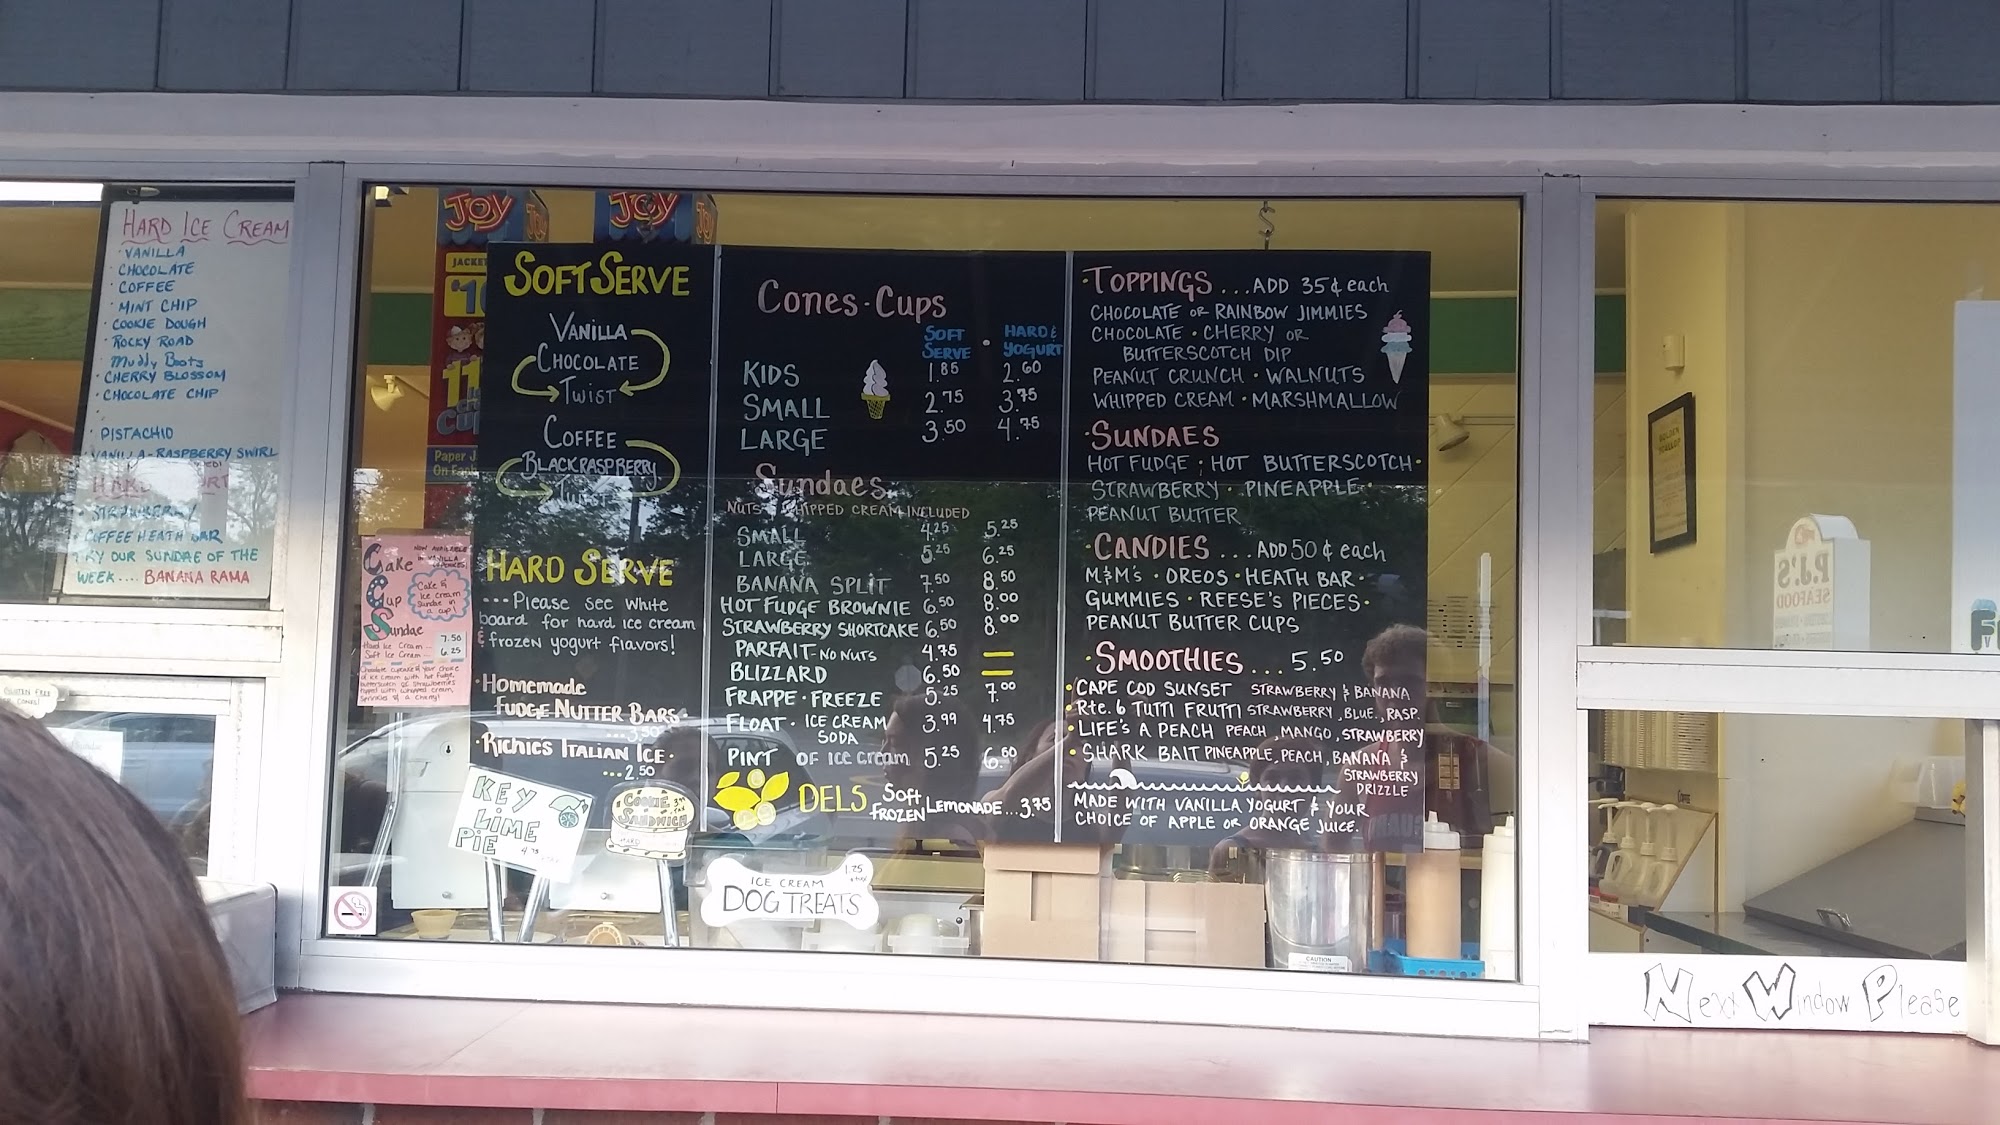 HARD ICE CREAM
· VANILLA
· CHOCOLATE
· COFFEE
· MINT CHIP
· COOKIE DOUGH
· ROCKY ROAD
· Muddy Boots
· CHERRY BLOSSOM
· CHOCOLATE CHIP
·
· PISTACHIO
VANILLA-RASPBERRY SWIRL
· STRAWBERRY
COFFEE HEATH BAR
TRY OUR SUNDAE OF THE
WEEK.... BANANA RAMA
JOY
JACKET
Paper J
JOY
Cake
Cup
Sundae
NOW AVAILABLE
Cake &
ice cream
Sundae in
a cup!
7.50
Hard Ice Cream
Soft Ice Cream 6.25
SOFT SERVE
VANILLA
CHOCOLATE
TWIST
COFFEE
BLACK RASPBERRY
TWIST
HARD SERVE
... Please see white
board for hard ice cream
& frozen yogurt flavors!
· Homemade
FUDGE NUTTER BARS ·
...3.50
· RICHIE'S ITALIAN ICE ·
...2.50
KEY
LIME
PIE
COOKIE
SANDWICH
Cones · Cups
SOFT SERVE · HARD & YOGURT
KIDS 1.85 2.60
SMALL 2.75 3.75
LARGE 3.50 4.75
Sundaes
NUTS & WHIPPED CREAM INCLUDED
SMALL 4.25 5.25
LARGE 5.25 6.25
BANANA SPLIT 7.50 8.50
HOT FUDGE BROWNIE 6.50 8.00
STRAWBERRY SHORTCAKE 6.50 8.00
PARFAIT NO NUTS 4.75 —
BLIZZARD 6.50 —
FRAPPE · FREEZE 5.25 7.00
FLOAT · ICE CREAM SODA 3.99 4.75
PINT OF ice cream 5.25 6.50
DELS Soft FROZEN LEMONADE...3.75
ICE CREAM 1.25
DOG TREATS
· TOPPINGS ...ADD 35¢ each
CHOCOLATE or RAINBOW JIMMIES
CHOCOLATE · CHERRY or
BUTTERSCOTCH DIP
PEANUT CRUNCH · WALNUTS
WHIPPED CREAM · MARSHMALLOW
· SUNDAES
HOT FUDGE · HOT BUTTERSCOTCH ·
STRAWBERRY · PINEAPPLE ·
PEANUT BUTTER
· CANDIES ...ADD 50¢ each
M&M's · OREOS · HEATH BAR ·
GUMMIES · REESE'S PIECES ·
PEANUT BUTTER CUPS
· SMOOTHIES ... 5.50
· CAPE COD SUNSET STRAWBERRY & BANANA
· Rte. 6 TUTTI FRUTTI STRAWBERRY, BLUE., RASP.
· LIFE'S A PEACH PEACH, MANGO, STRAWBERRY
· SHARK BAIT PINEAPPLE, PEACH, BANANA &
STRAWBERRY
DRIZZLE
MADE WITH VANILLA YOGURT & YOUR
CHOICE OF APPLE OR ORANGE JUICE.
CAUTION
P.J.'S
SEAFOOD
Next Window Please